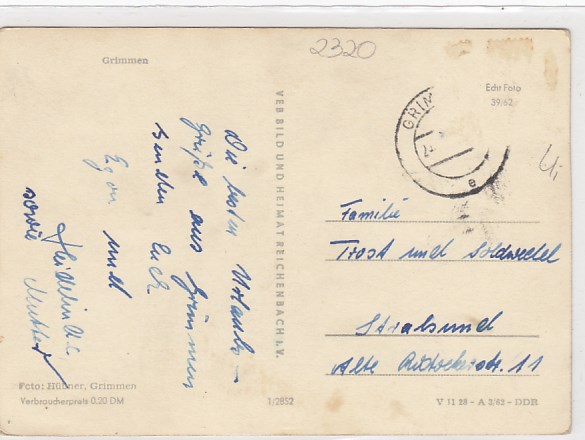 2320
Grimmen
Echt Foto
39/62
GRIM
e
Die besten Urlaubs-
grüße aus Grimmen
senden Euch
Egon und
sowie Mutter
VEB BILD UND HEIMAT REICHENBACH i.V.
Familie
Trost und Soldwedel
Stralsund
Alte 11
Foto: Hübner, Grimmen
Verbraucherpreis 0.20 DM
1/2852
V 11 28 - A 2/62 - DDR